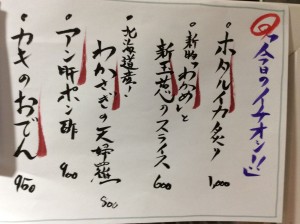 「今日のイチオシ!!」
・ホタルイカ炙り
1,000
・新物わかめと
新玉葱のスライス
600
・北海道産!
わかさぎの天婦羅
800
・アン肝ポン酢
900
・カキのおでん
950